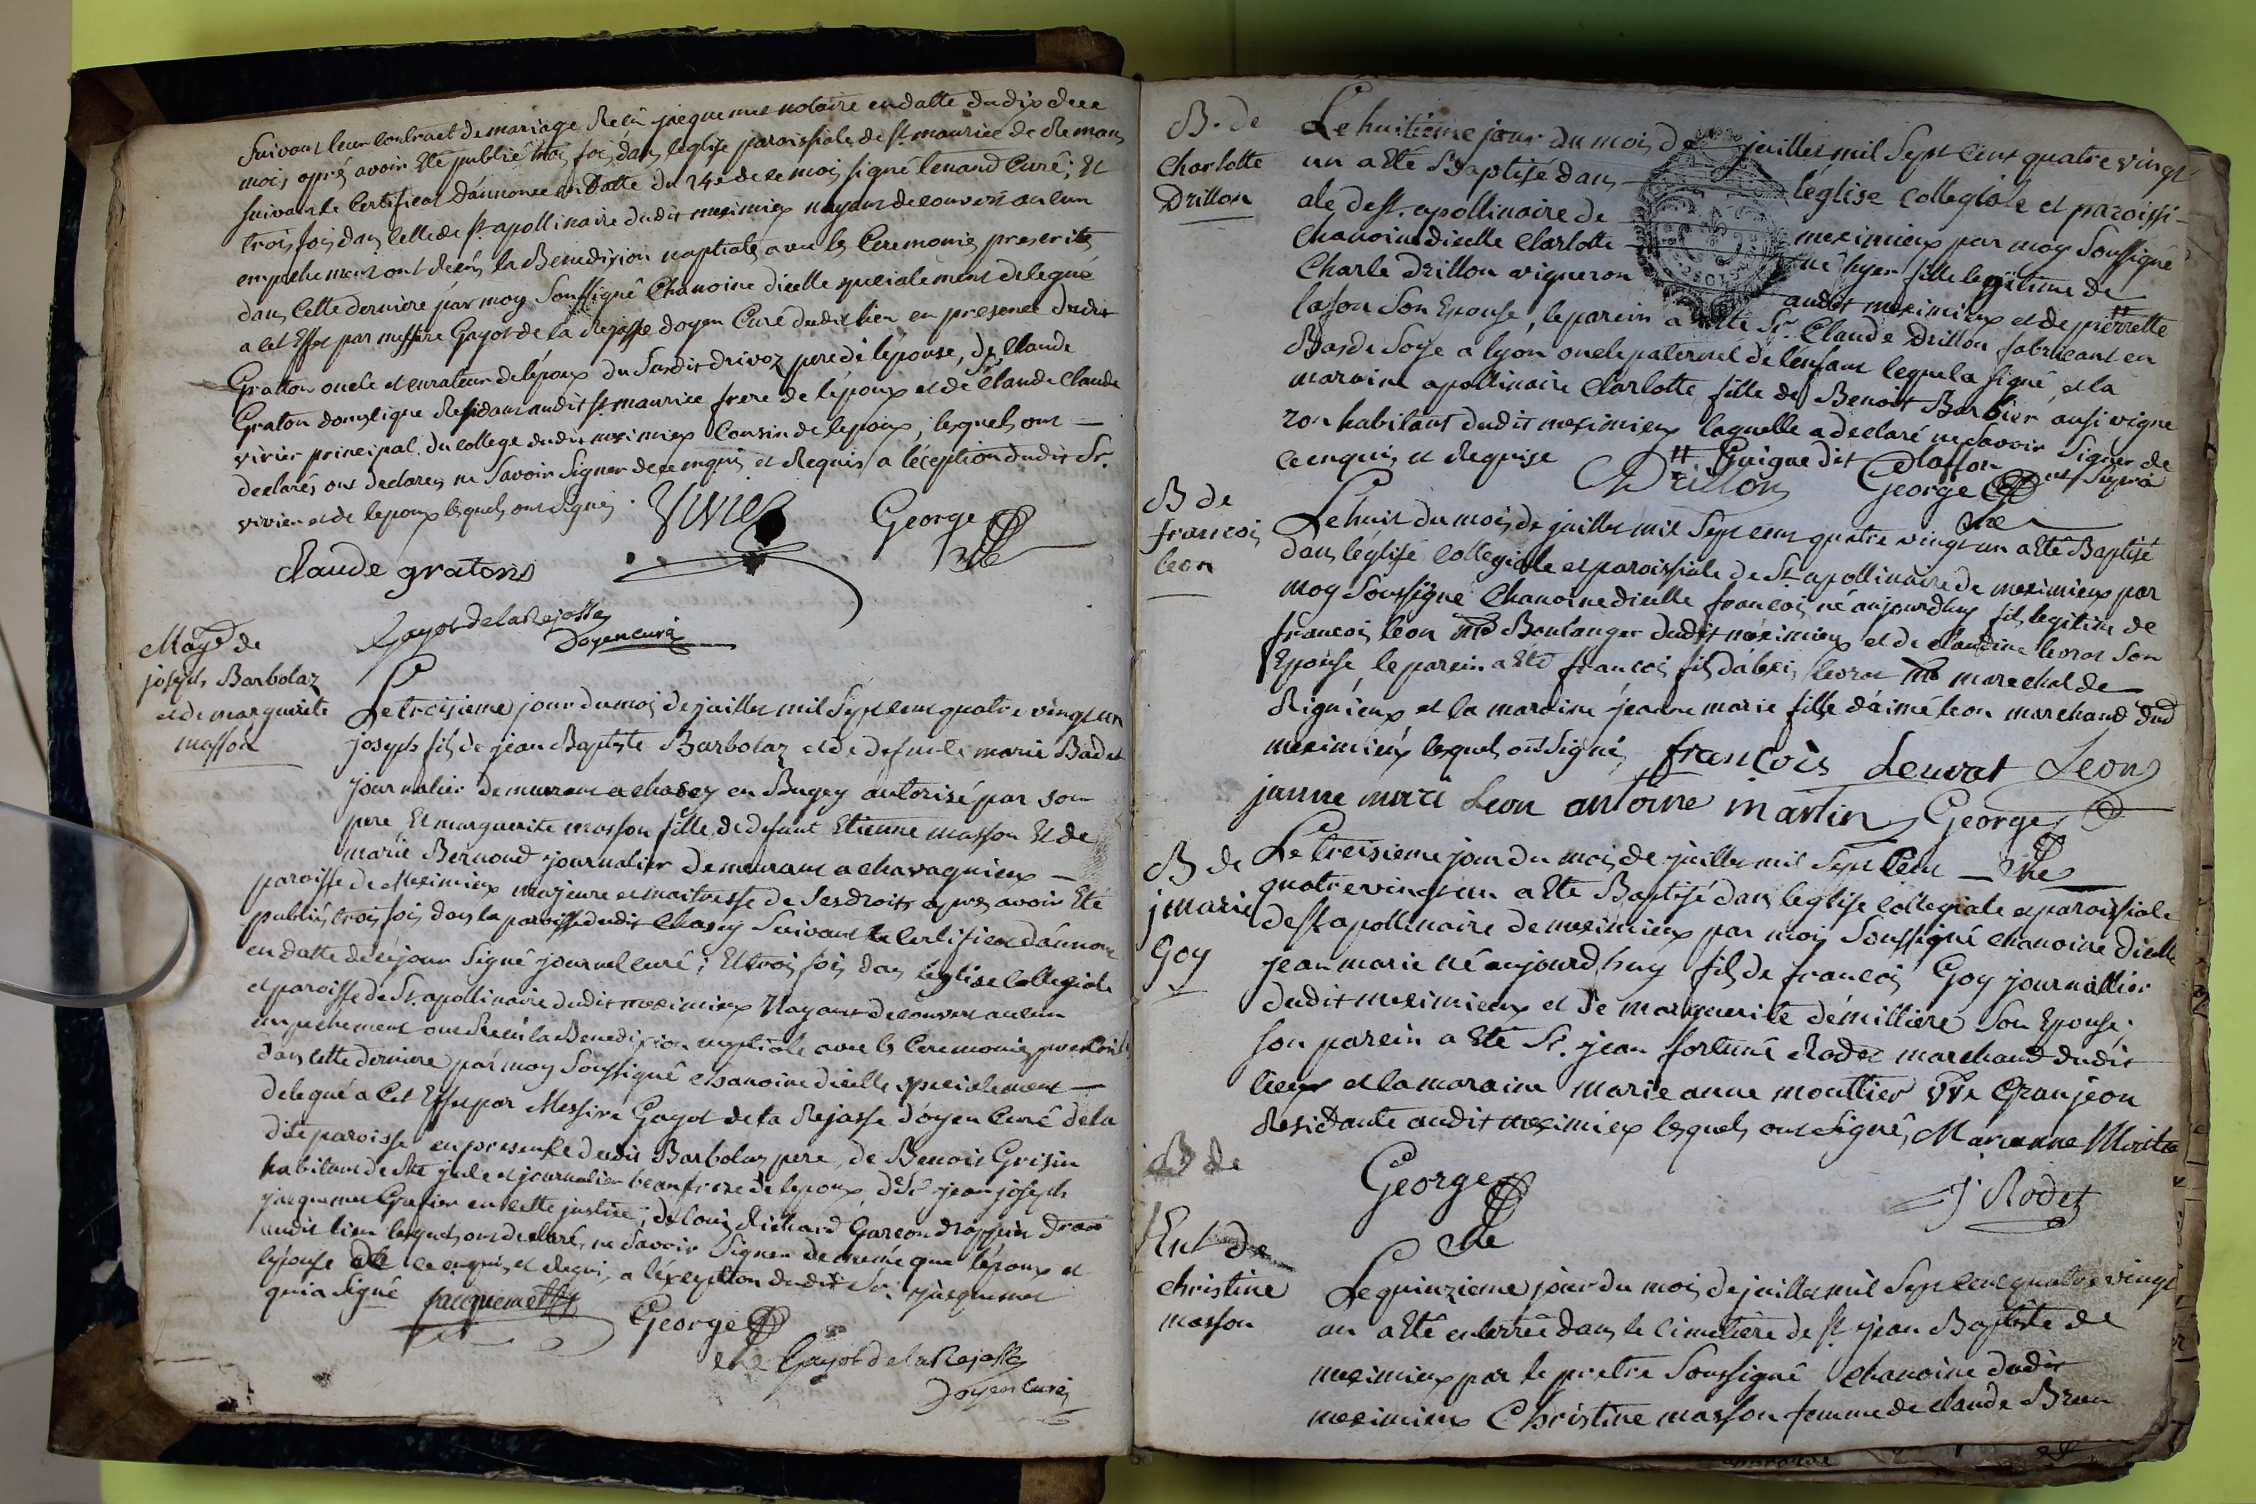 Suivant leur contract de mariage Recû jacquemet notaire en datte du dix de ce
mois aprés avoir Eté publié trois fois dans leglise paroissiale de st. maurice de Reman
suivant le Certificat dánnonce en Datte du 24e de ce mois signé tenand Curé; Et
trois fois dans celle de st. apollinaire dudit meximieux nayant decouvert aucun
empechement ont Recûs la Benediction nuptiale avec les Ceremonies prescrites
dans Cette derniere par moy Soussigné Chanoine dicelle specialement delegué
a cet Effet par messire Gayot de la Rejasse doyen Curé dudit lieu en presence dudit
Gratton oncle et curateur de lépoux du Susdit drivoz pere de lépouse, de Claude
Graton domestique Residant audit st. maurice frere de lépoux et de Claude Claude
vivier principal du college dudit meximieux Cousin de lepoux, lesquels ont
declarés ont declares ne Savoir Signer de ce enquis et Requis a léception dudit Sr.
vivier et de lepoux lesquels ont Signés.
Vivier George
che
claude gratons
Gayot de la Rejasse
Doyen curé
Mage de
joseph Barbolaz
et de marguerite
masson
Le troisieme jour du mois de juillet mil Sept cent quatre vingt un
joseph fils de jean Baptiste Barbolaz et de defunte marie Badet
journalier demeurant a chasey en Bugey autorisé par son
pere, Et marguerite masson fille de defunt Etienne masson Et de
marie Bernoud journalier demeurant a chavagnieux
paroisse de Meximieux majeure et maitresse de Ses droits apres avoir Eté
publiés trois fois dans la paroisse dudit Chasey Suivant le Certificat dánnonce
en datte de ce jour Signé journel curé; Et trois fois dans leglise Collegiale
et paroisse de St. apollinaire dudit meximieux Nayant decouvert aucun
empechement ont Recû la Benediction nuptiale avec les Ceremonies prescrites
dans cette derniere par moy Soussigné chanoine dicelle specialement
delegué a Cet Effet par Messire Gayot de la Rejasse doyen Curé de la
dite paroisse en presence dudit Barbolaz pere, de Benoit Grisin
habitant de Ste julie et journalier beaufrere de lepoux, de Sr. jean joseph
jacquemet Grefier en cette justice, de louis Richard Garcon drappier
audit lieu lesquels ont declaré ne Savoir Signer de meme que lépoux et
lépouse de ce enquis et Requis, a léxception dudit Sr. jacquemet
qui a Signé jacquemet George
che Gayot de la Rejasse
Doyen curé
B. de
Charlotte
Drillon
Le huitieme jour du mois de juillet mil Sept Cent quatre vingt
un a Eté Baptisé dans léglise Collegiale et paroissi-
ale de st. apollinaire de meximieux par moy Soussigné
Chanoine dicelle Charlotte né hyer fille legitime de
Charle Drillon vigneron audit meximieux et de pierrette
lafon Son Epouse, le parein a Eté Sr. Claude Drillon fabricant en
Bas de Soye a lyon oncle paternel de lénfant lequel a signé, et la
maraine apollinaire Charlotte fille de Benoit Barbier ausi vigne
ron habitant dudit meximieux laquelle a declaré ne Savoir Signer de
ce enquis et Requise tt Guigue dit lafson
Drillon George ut Supra
che
B de
francois
leon
Le huit du mois de juillet mil Sept cens quatre vingt un a Eté Baptisé
dans léglise Collegiale et paroissiale de St. apollinaire de meximieux par
moy Soussigné Chanoine dicelle francois né aujourdhuy fils legitime de
francois leon Boulanger dudit méximieux et de claudine levrat Son
Epouse, le parein a Eté francois fils dálexis levrat marechal de
Rignieux et la maraine jeanne marie fille dáimé leon marchand dud
meximieux lesquels ont Signés francois Leuvrat Leon
janne marie Leon antoine martin George
che
B de
j marie
Goy
Le treisieme jour du mois de juillet mil Sept Cent
quatre vingt un a Eté Baptisé dans leglise collegiale et paroissiale
de st apollinaire de meximieux par moy Soussigné chanoine dicelle
jean marie né aujourdhuy fils de francois Goy journallier
dudit meximieux et de marguerite démilliere Son Epouse;
son parein a Eté Sr. jean fortuné Rodet marchand dudit
lieux et la maraine marie anne mouttier vve Granjeon
Residante audit meximieux lesquels ont Signé, Marianne
George
che
J Rodet
B de
Ent de
christine
masson
Le quinzieme jour du mois de juillet mil Sept cent quatre vingt
un a Eté enterrée dans le cimetière de st. jean Baptiste de
meximieux par le pretre Soussigné chanoine dudit
meximieux Christine masson femme de claude Brun